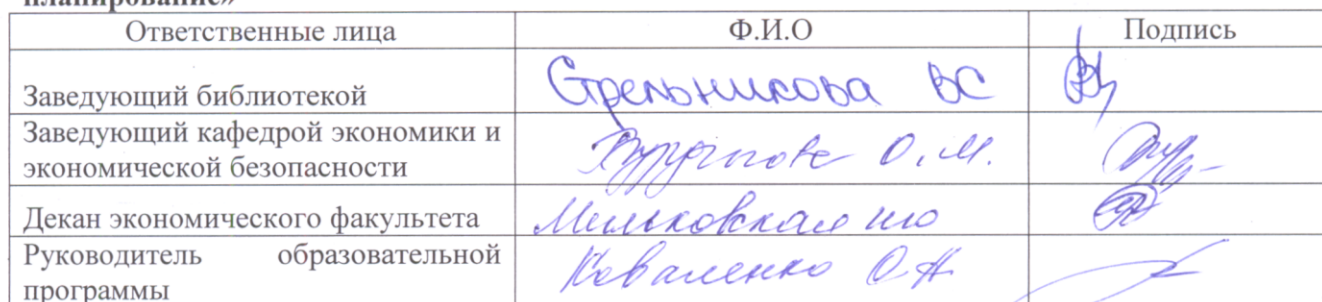 планирование»
Ответственные лица Ф.И.О Подпись
Заведующий библиотекой Стрельникова ВС
Заведующий кафедрой экономики и
экономической безопасности О.М.
Декан экономического факультета Мильковская
Руководитель образовательной Коваленко О.Н
программы